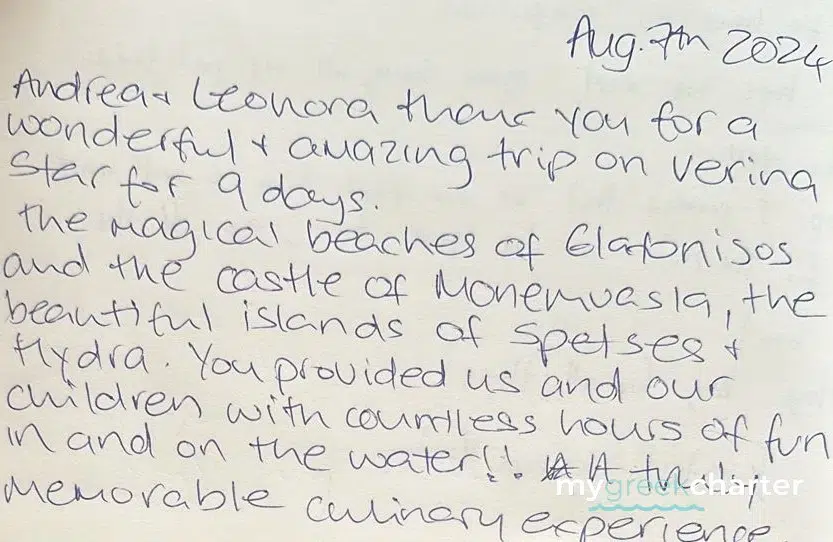 Aug. 7th 2024
Andrea + Leonora thank you for a
wonderful + amazing trip on verina
Star for 9 days.
the magical beaches of Elafonisos
and the castle of Monemvasia, the
beautiful islands of Spetses +
Hydra. You provided us and our
children with countless hours of fun
in and on the water!! A truly
memorable culinary experience.
mygreekcharter